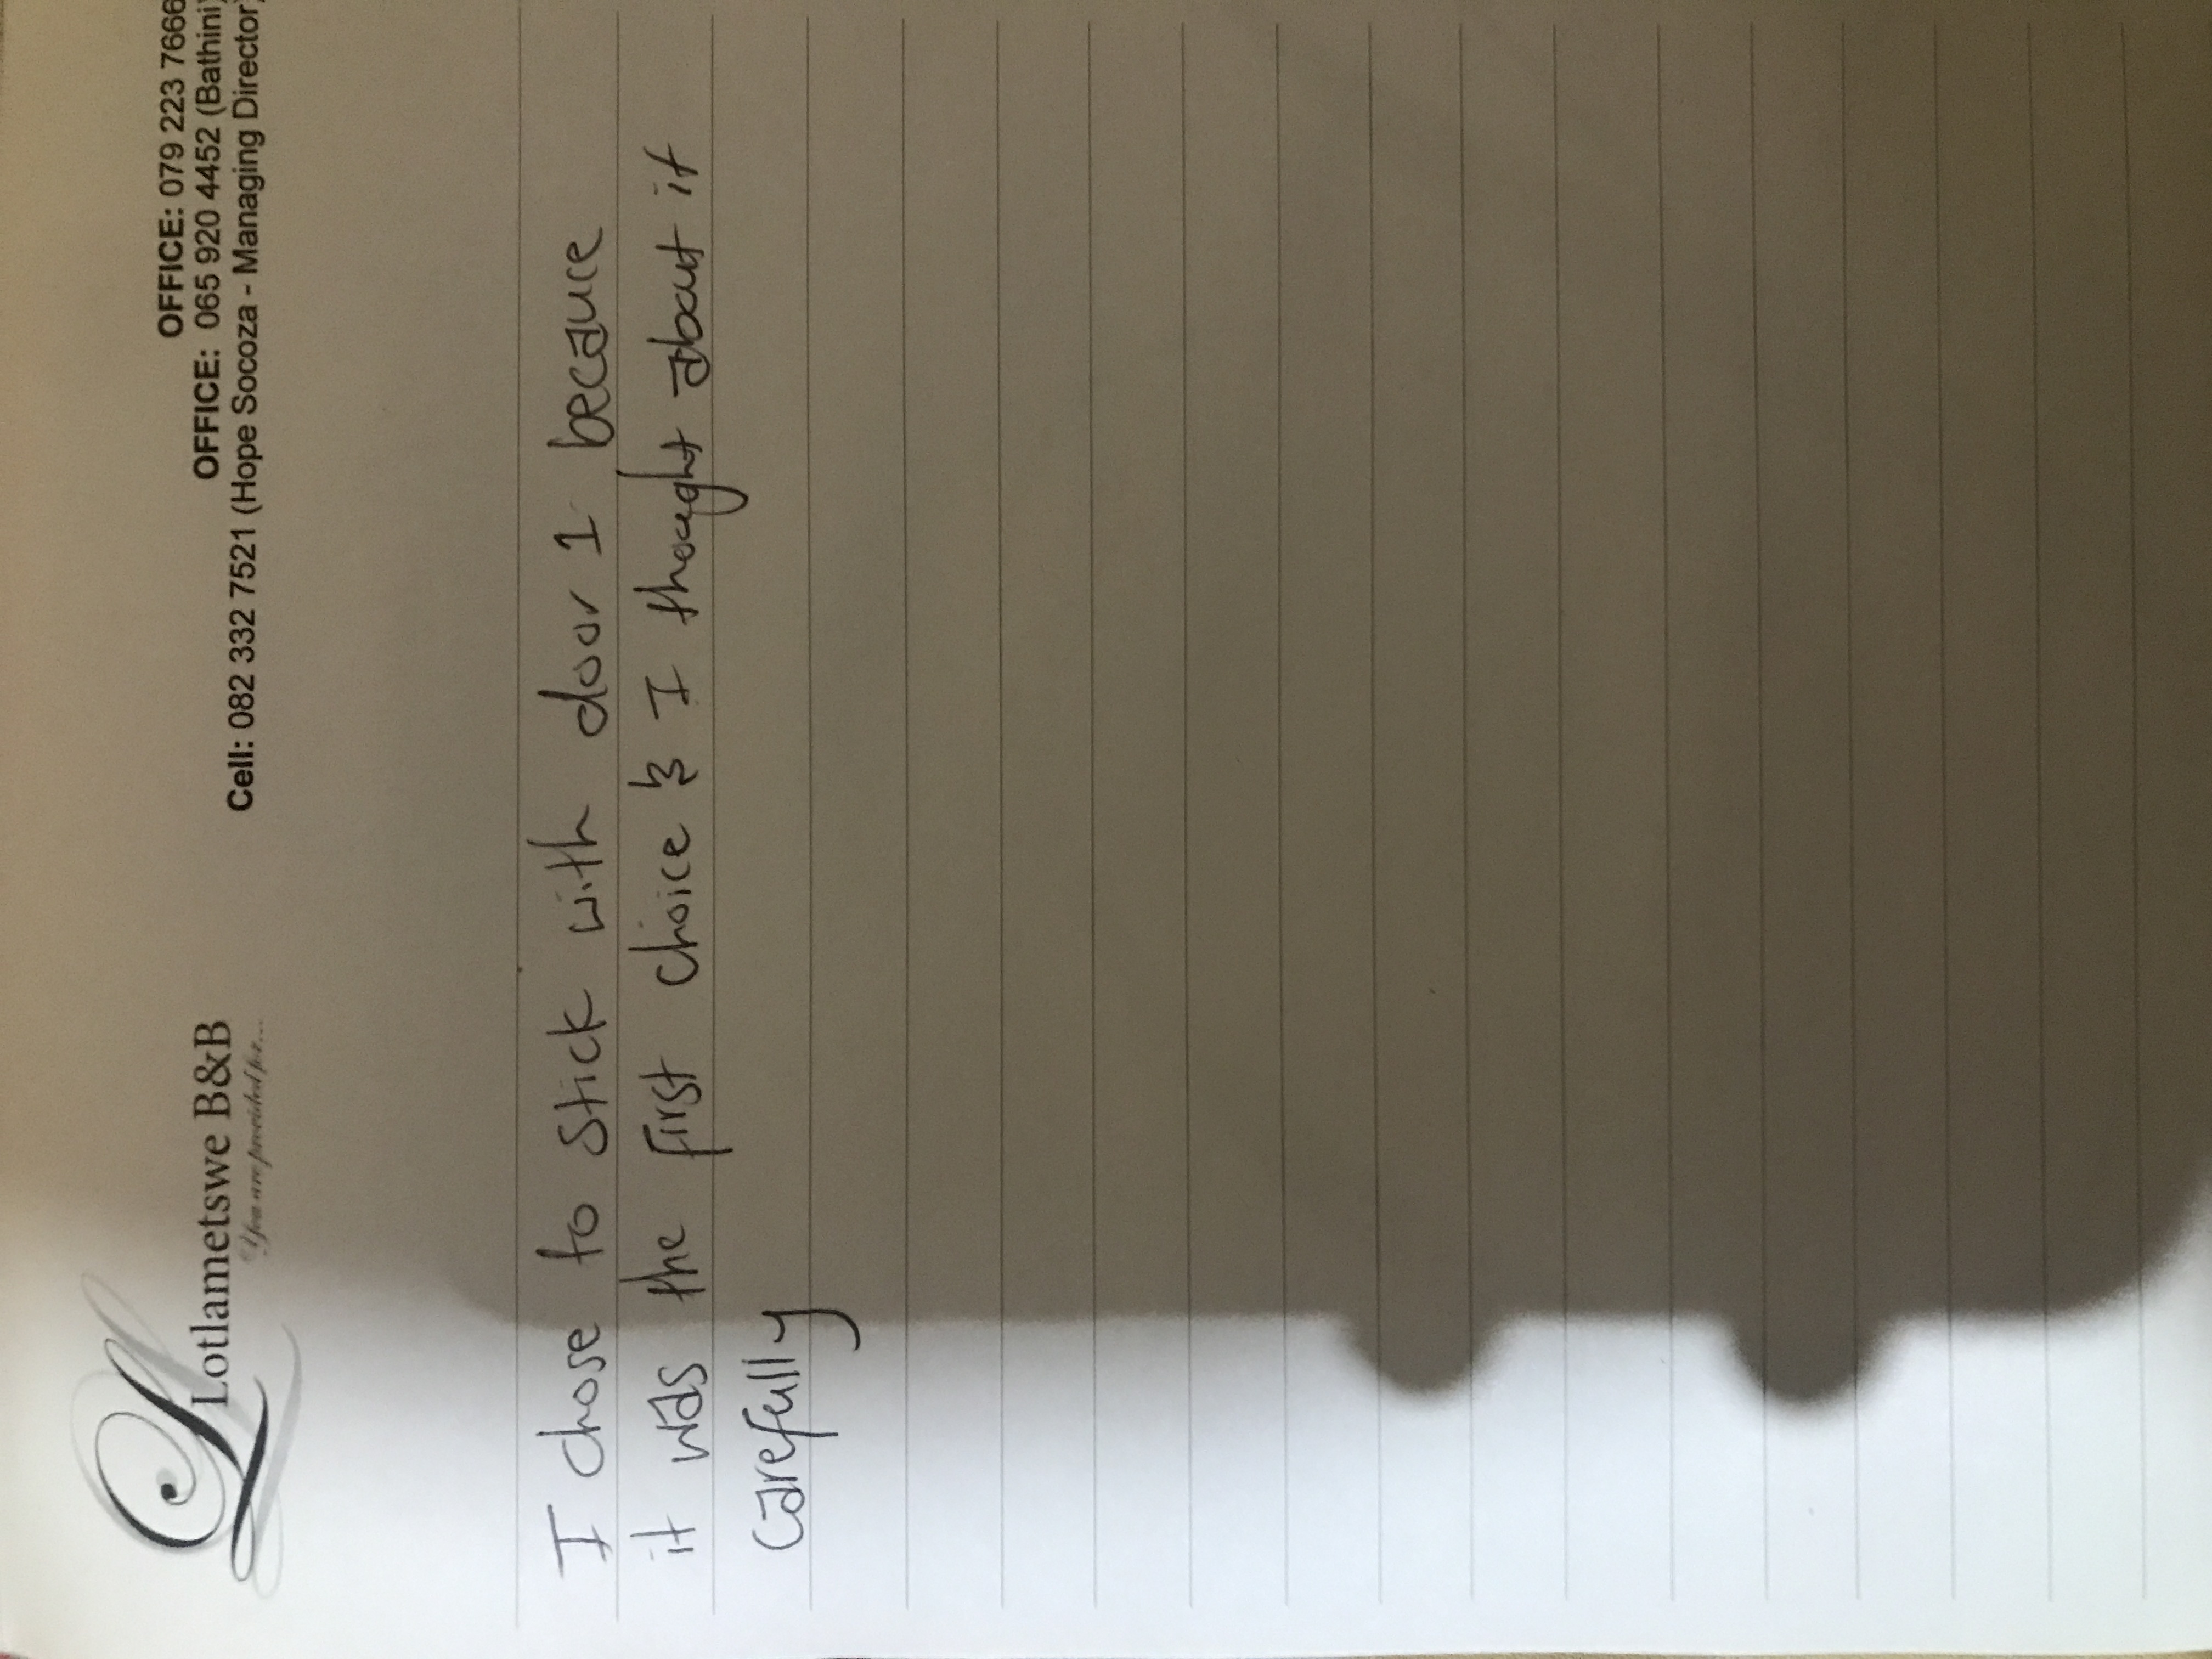 Lotlametswe B&B
You are provided for...
OFFICE: 079 223 7666
OFFICE: 065 920 4452 (Bathini)
Cell: 082 332 7521 (Hope Socoza - Managing Director)
I chose to stick with door 1 because
it was the first choice & I thought about it
carefully